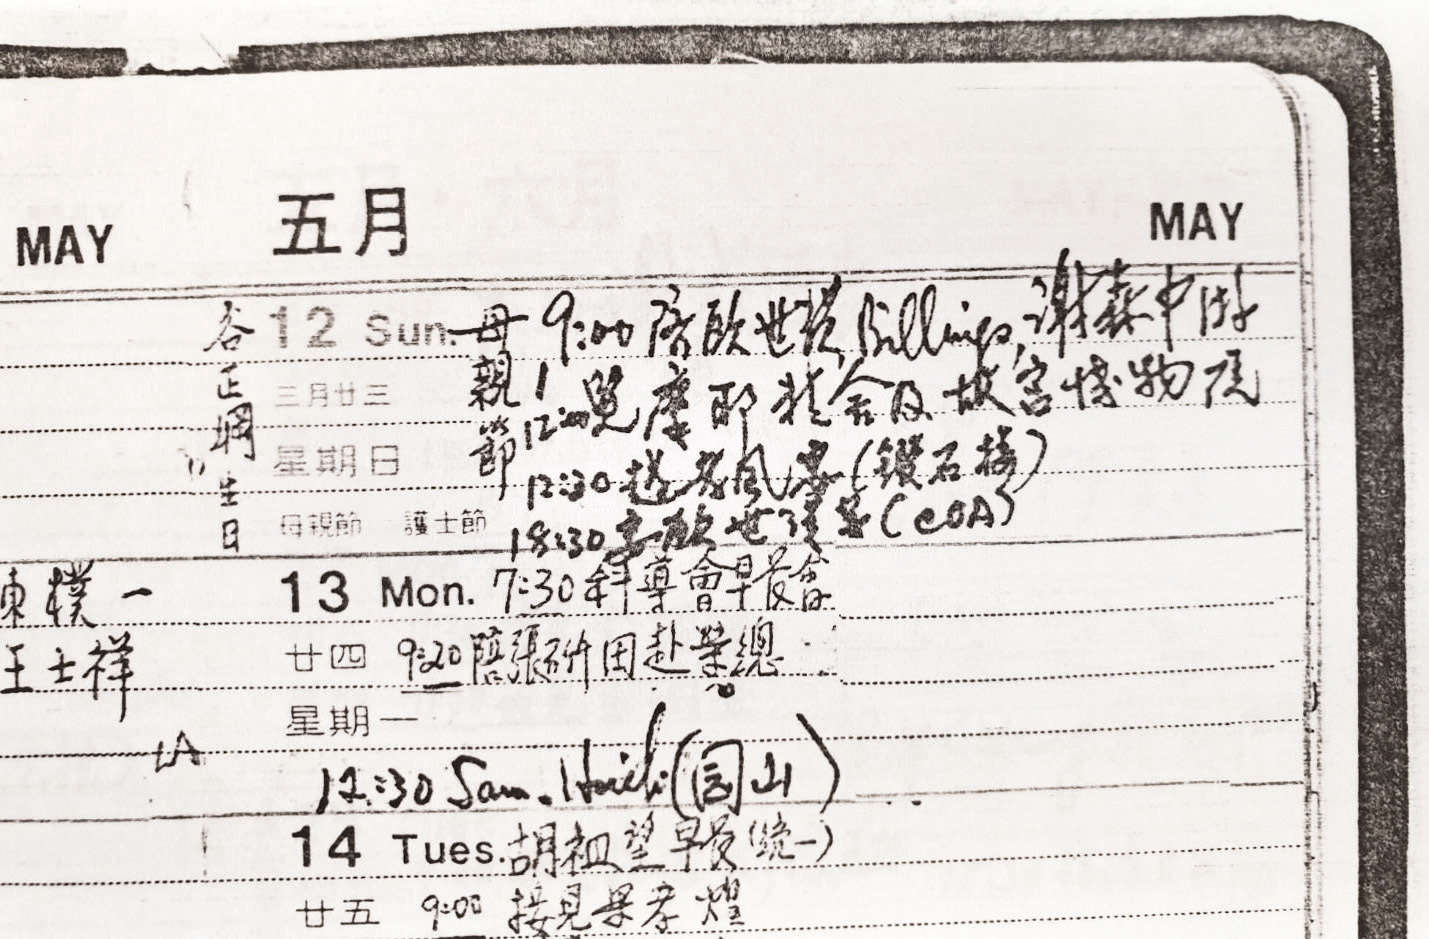 MAY
五月
MAY
谷正綱生日
12 Sun.
母親節
9:00 陪歐世璜, Billings, 謝森中 游
三月廿三
12:00 覽摩耶精舍及故宮博物院
星期日
12:30 (鑽石樓)
母親節 護士節
18:30 歐世璜 (COA)
13 Mon. 7:30 輔導會早餐會
陳樸一
廿四 9:20 陪張研田赴榮總
王士祥
星期一
12:30 Sam. (圓山)
14 Tues. 胡祖望早餐(統一)
廿五 9:00 接見